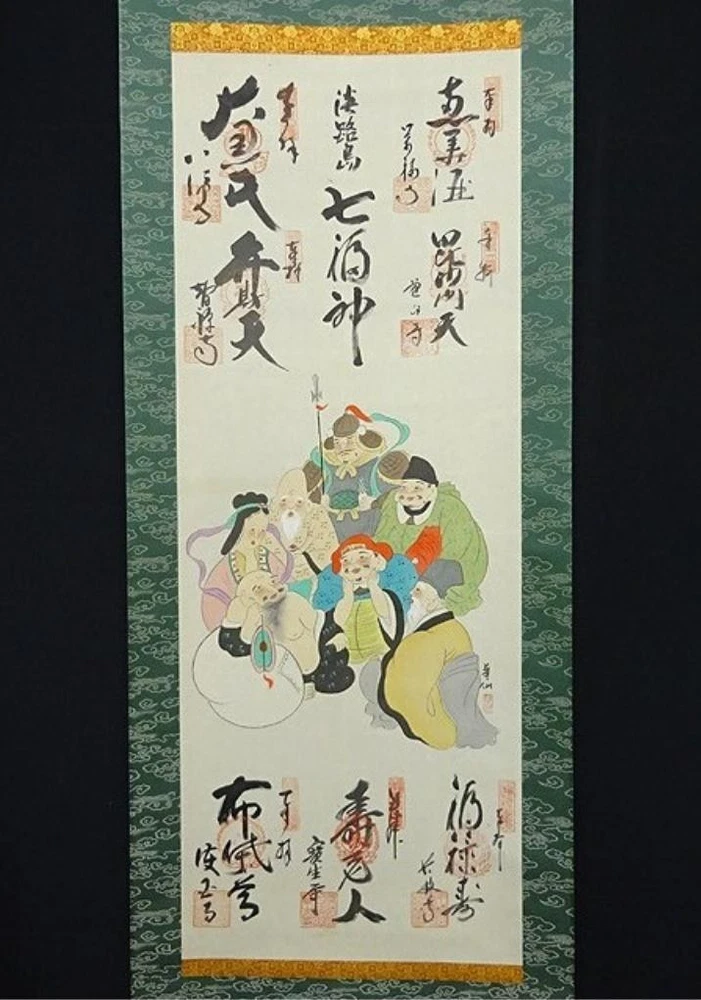 奉拝
恵美酒
萬福寺
奉拝
毘沙門天
覚住寺
淡路島
七福神
奉拝
大黒天
八浄寺
奉拝
弁財天
智禅寺
奉拝
福禄寿
長林寺
奉拝
寿老人
寳生寺
奉拝
布袋尊
護国寺